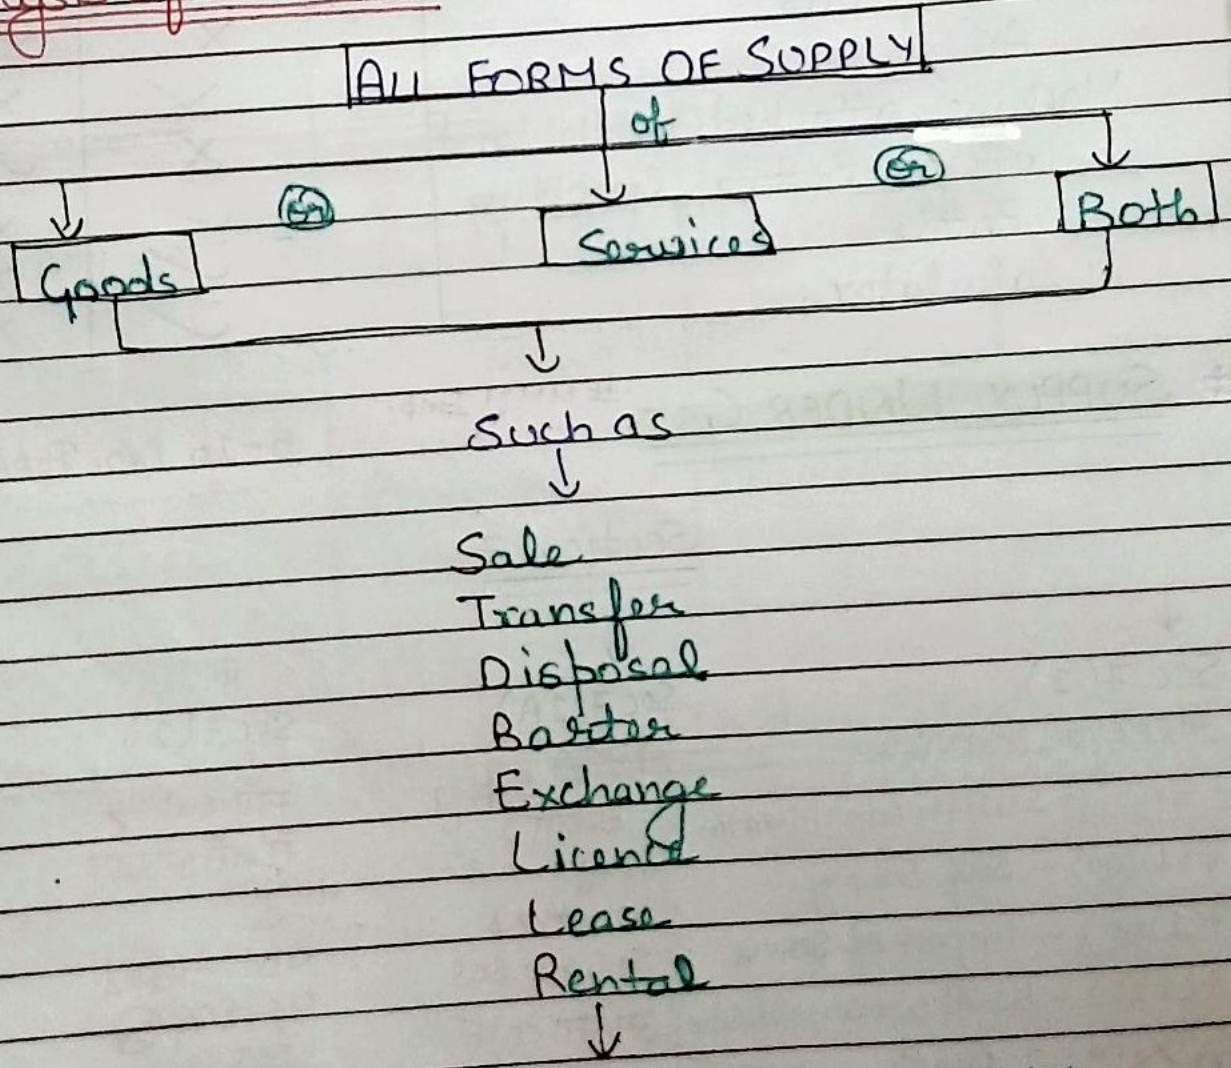 ALL FORMS OF SUPPLY
of
or
or
Goods
Services
Both
Such as
Sale
Transfer
Disposal
Barter
Exchange
Licence
Lease
Rental